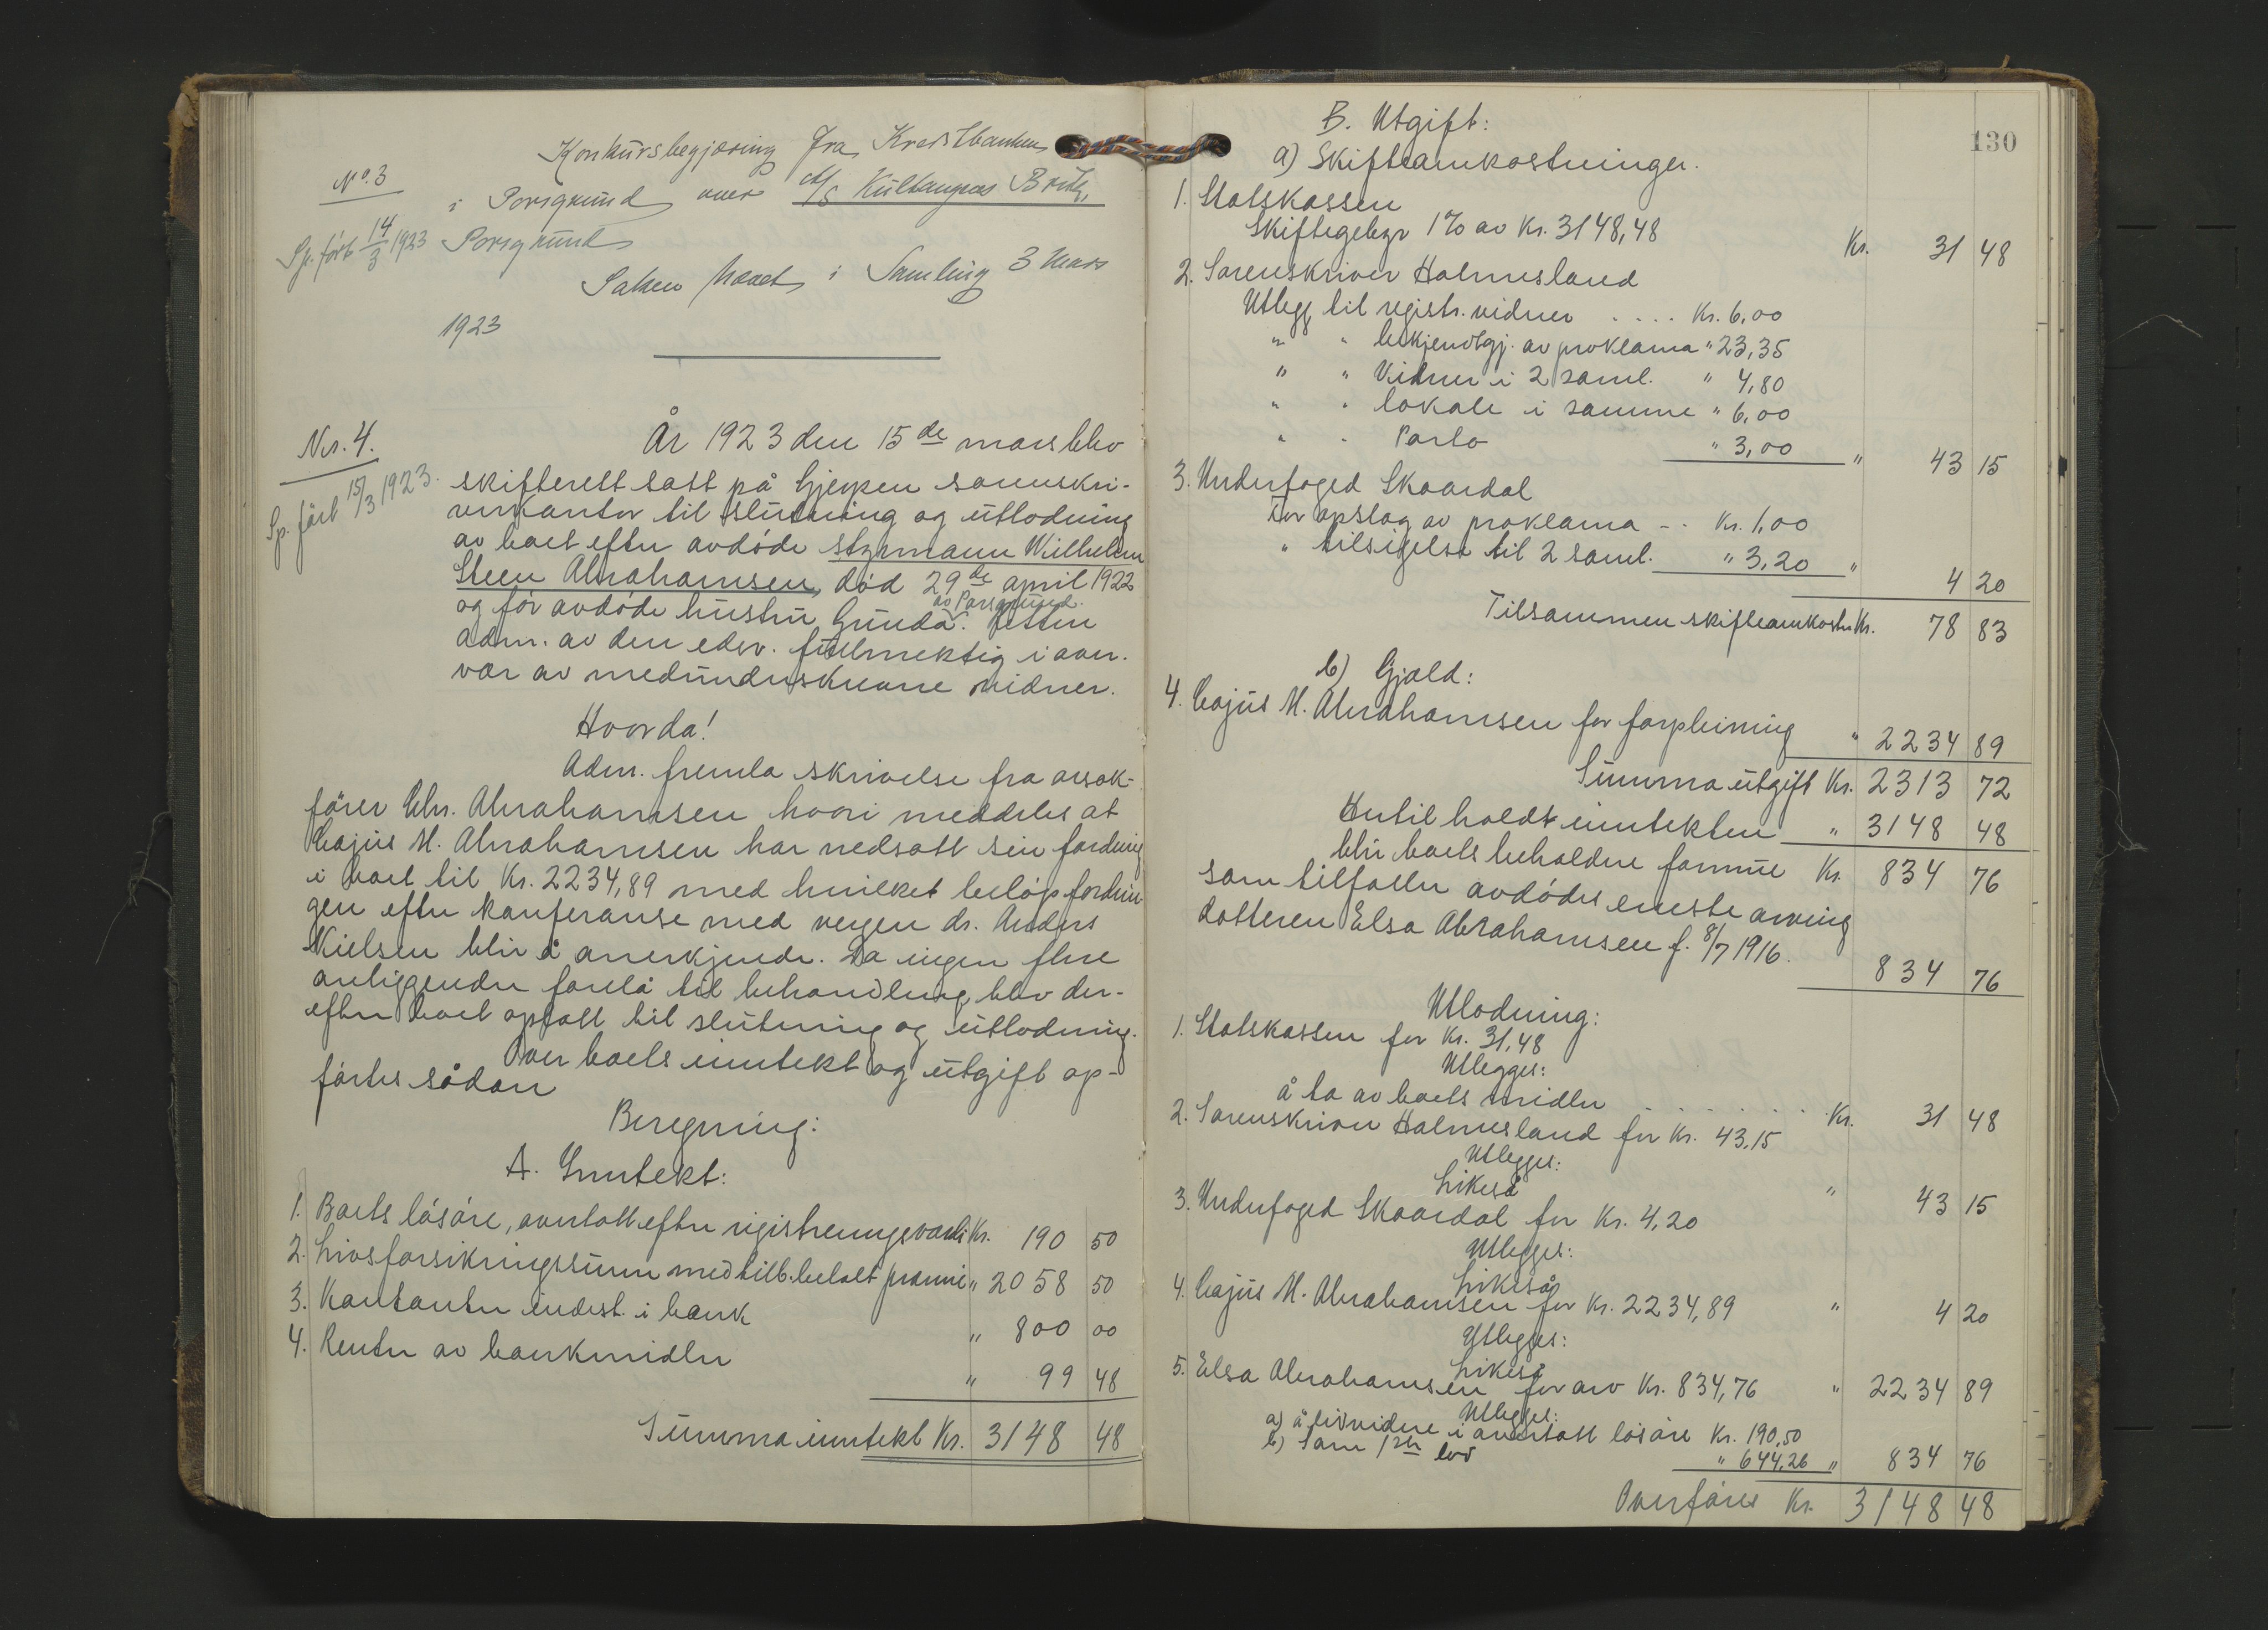 Konkursbegjæring fra Kreditbanken
No. 3
i Porsgrund over A/S Kultangens Bruk,
Sp. ført 14/3 1923
Porsgrund
Saken hævet i Samling 3 Mars
1923
Nr. 4.
Sp. ført 15/3 1923.
År 1923 den 15de mars blev
skifterett satt på Gjerpen sorenskri-
verkontor til slutning og utlodning
av boet efter avdøde styrmann Wilhelm
Steen Abrahamsen, død 29de april 1922
og før avdøde hustru Gunda av Porsgrund. Retten
adm. av den edsv. fullmektig i over-
vær av medunderskrevne vidner.
Hvorda!
Adm. fremla skrivelse fra ovsok-
fører Chr. Abrahamsen hvori meddeles at
Cajus M. Abrahamsen har nedsatt sin fordring
i boet til Kr. 2234,89 med hvilket beløp fordrin-
gen efter konferanse med vergen dr. Anders
Nielsen blir å anerkjende. Da ingen flere
anliggender forelå til behandling blev der-
efter boet optatt til slutning og utlodning.
Over boets inntekt og utgift op-
førtes sådan
Beregning:
A. Inntekt:
1. Boets løsøre, overtatt efter registreringsverdi Kr. 190 50
2. Livsforsikringssum med tilb. betalt premie " 2058 50
3. Kontanter indest. i bank " 800 00
4. Renter av bankmidler " 99 48
Summa inntekt Kr. 3148 48
130
B. Utgift:
a) Skifteomkostninger.
1. Statskassen
Skiftegebyr 1% av Kr. 3148,48 Kr. 31 48
2. Sorenskriver Holmesland
Utlegg til registr. vidner .... Kr. 6,00
" " bekjendtgj. av proklama " 23,35
" " Vidner i 2 saml. " 4,80
" " lokale i samme " 6,00
" " Porto " 3,00 " 43 15
3. Underfoged Skaardal
For opslag av proklama -- Kr. 1,00
" tilsigelse til 2 saml. " 3,20 " 4 20
Tilsammen skifteomkostn. Kr. 78 83
b) Gjæld:
4. Cajus M. Abrahamsen for forpleining " 2234 89
Summa utgift Kr. 2313 72
Hertil holdt inntekten " 3148 48
blir boets beholdne formue Kr. 834 76
som tilfaller avdødes eneste arving
datteren Elsa Abrahamsen f. 8/7 1916. 834 76
Utlodning:
1. Statskassen for Kr. 31,48
Utlegges:
å ta av boets midler ....... Kr. 31 48
2. Sorenskriver Holmesland for Kr. 43,15
Utlegges:
Likeså " 43 15
3. Underfoged Skaardal for Kr. 4,20
Utlegges:
Likeså " 4 20
4. Cajus M. Abrahamsen for Kr. 2234,89
Utlegges:
Likeså " 2234 89
5. Elsa Abrahamsen for arv Kr. 834,76
Utlegges:
a) å likvidere i overtatt løsøre Kr. 190,50
b) Som 1ste lod " 644,26 " 834 76
Overføres Kr. 3148 48